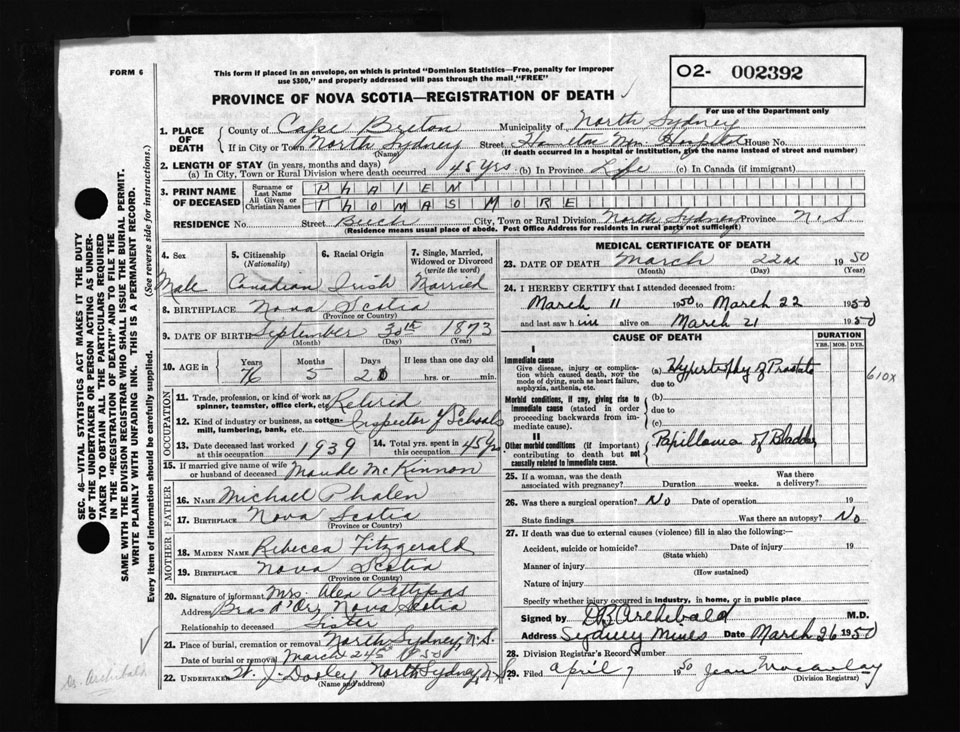 FORM 6
This form if placed in an envelope, on which is printed "Dominion Statistics—Free, penalty for improper
use $300," and properly addressed will pass through the mail "FREE"
O2- 002392
For use of the Department only
PROVINCE OF NOVA SCOTIA—REGISTRATION OF DEATH
1. PLACE OF DEATH
County of Cape Breton Municipality of North Sydney
If in City or Town North Sydney (Name) Street Hamilton Hospital House No.
(If death occurred in a hospital or institution, give the name instead of street and number)
2. LENGTH OF STAY (in years, months and days)
(a) In City, Town or Rural Division where death occurred 45 yrs (b) In Province Life (c) In Canada (if immigrant)
3. PRINT NAME OF DECEASED
Surname or Last Name PHALEN
All Given or Christian Names THOMAS MORE
RESIDENCE No. Street Beech City, Town or Rural Division North Sydney Province N.S.
(Residence means usual place of abode. Post Office Address for residents in rural parts not sufficient)
4. Sex Male
5. Citizenship (Nationality) Canadian
6. Racial Origin Irish
7. Single, Married, Widowed or Divorced (write the word) Married
8. BIRTHPLACE Nova Scotia
(Province or Country)
9. DATE OF BIRTH September 30th 1873
(Month) (Day) (Year)
10. AGE in Years 76 Months 5 Days If less than one day old
hrs. or min.
OCCUPATION
11. Trade, profession, or kind of work as spinner, teamster, office clerk, etc. Retired
12. Kind of industry or business, as cotton-mill, lumbering, bank, etc. Inspector of Schools
13. Date deceased last worked at this occupation 1939
14. Total yrs. spent in this occupation 45 yrs
15. If married give name of wife or husband of deceased Maude McKinnon
FATHER
16. NAME Michael Phalen
17. BIRTHPLACE Nova Scotia
(Province or Country)
MOTHER
18. MAIDEN NAME Rebecca Fitzgerald
19. BIRTHPLACE Nova Scotia
(Province or Country)
20. Signature of informant Mrs. Alex
Address Bras d'Or, Nova Scotia
Relationship to deceased Sister
21. Place of burial, cremation or removal North Sydney, N.S.
Date of burial or removal March 1950
22. UNDERTAKER W. J. Dooley North Sydney, N.S.
(Name and address)
MEDICAL CERTIFICATE OF DEATH
23. DATE OF DEATH March 22nd 1950
(Month) (Day) (Year)
24. I HEREBY CERTIFY that I attended deceased from:
March 11 1950 to March 22 1950
and last saw him alive on March 21 1950
CAUSE OF DEATH
DURATION
YRS. MOS. DYS.
I
Immediate cause
Give disease, injury or complication which caused death, not the mode of dying, such as heart failure, asphyxia, asthenia, etc.
(a) Hypertrophy of Prostate
due to
610X
Morbid conditions, if any, giving rise to immediate cause (stated in order proceeding backwards from immediate cause).
(b)
due to
(c)
II
Other morbid conditions (if important) contributing to death but not causally related to immediate cause.
Papilloma of Bladder
25. If a woman, was the death associated with pregnancy? Duration weeks. Was there a delivery?
26. Was there a surgical operation? No Date of operation 19
State findings Was there an autopsy? No
27. If death was due to external causes (violence) fill in also the following:
Accident, suicide or homicide? Date of injury 19
(State which)
Manner of injury
(How sustained)
Nature of injury
Specify whether injury occurred in industry, in home, or in public place
Signed by Archibald M.D.
Address Sydney Mines Date March 26 1950
28. Division Registrar's Record Number
29. Filed April 7 1950 Jean
(Division Registrar)
SEC. 46—VITAL STATISTICS ACT MAKES IT THE DUTY
OF THE UNDERTAKER OR PERSON ACTING AS UNDER-
TAKER TO OBTAIN ALL THE PARTICULARS REQUIRED
IN THE "REGISTRATION OF DEATH" AND TO FILE THE
SAME WITH THE DIVISION REGISTRAR WHO SHALL ISSUE THE BURIAL PERMIT.
WRITE PLAINLY WITH UNFADING INK. THIS IS A PERMANENT RECORD.
Every item of information should be carefully supplied. (See reverse side for instructions.)
Dr. Archibald